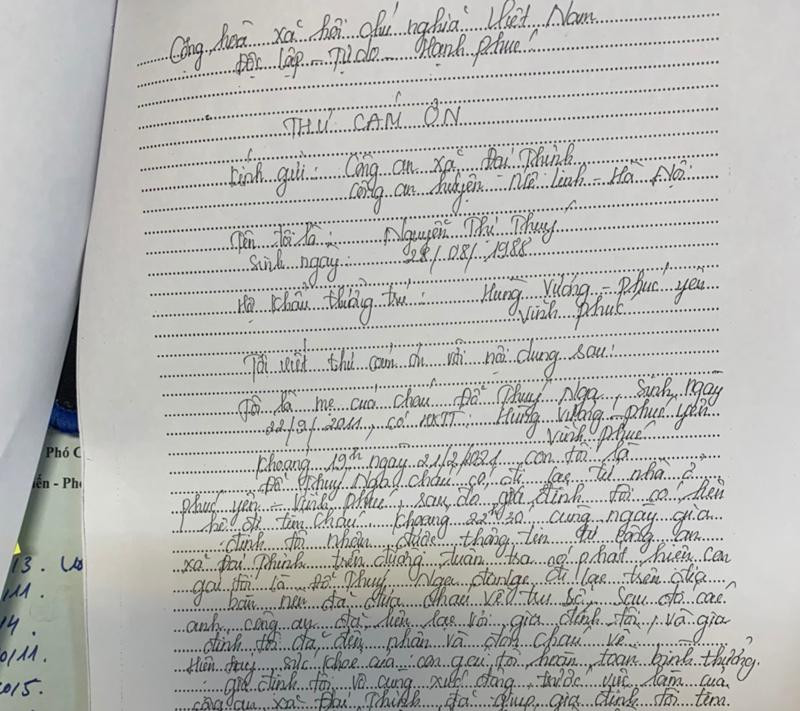 Cộng hoà xã hội chủ nghĩa Việt Nam
Độc lập - Tự do - Hạnh phúc
THƯ CẢM ƠN
Kính gửi: Công an xã Đại Thịnh
Công an huyện Mê Linh - Hà Nội
Tên tôi là: Nguyễn Thị Thuý
Sinh ngày: 28/08/1988
Hộ khẩu thường trú: Hùng Vương - Phúc Yên
Vĩnh Phúc
Tôi viết thư cảm ơn với nội dung sau:
Tôi là mẹ của cháu Đỗ Thuý Nga, sinh ngày
22/9/2011, có HKTT: Hùng Vương - Phúc Yên
Vĩnh Phúc
Khoảng 19h ngày 21/2/2021 con tôi là
Đỗ Thuý Nga cháu có đi lạc từ nhà ở
Phúc Yên - Vĩnh Phúc, sau đó gia đình tôi có liên
hệ đi tìm cháu, khoảng 22h30' cùng ngày gia
đình tôi nhận được thông tin từ công an
xã Đại Thịnh trên đường tuần tra có phát hiện con
gái tôi là Đỗ Thuý Nga đang đi lạc trên địa
bàn nên đã đưa cháu về trụ sở. Sau đó các
anh công an đã liên lạc với gia đình tôi, và gia
đình tôi đã đến nhận và đón cháu về.
Hiện nay, sức khoẻ của con gái tôi hoàn toàn bình thường.
gia đình tôi vô cùng xúc động trước việc làm của
công an xã Đại Thịnh đã giúp gia đình tôi tìm
Phó C
iến - Ph
13.
11.
14.
0/11.
2015.